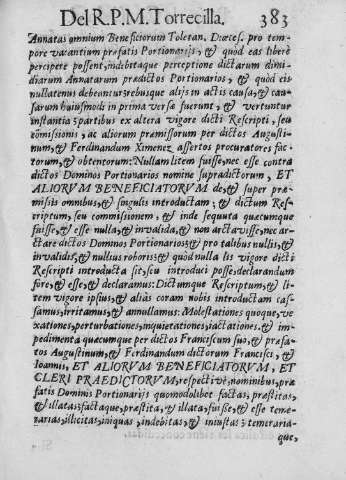 Del R. P. M. Torrecilla. 383
Annatas omnium Beneficiorum Toletan. Diœces. pro tem-
pore vacantium præfatis Portionarijs, & quòd eas liberè
percipere possent, indebitaque perceptione dictarum dimi-
diarum Annatarum prædictos Portionarios, & quòd eis
nullatenus debeantur, rebusque alijs in actis causæ, & cau-
sarum huiusmodi in prima versæ fuerunt, & vertuntur
instantia; partibus ex altera vigore dicti Rescripti, seu
cõmissionis, ac aliorum præmissorum per dictos Augusti-
num, & Ferdinandum Ximenez assertos procuratores fac-
torum, & obtentorum: Nullam litem fuisse, nec esse contra
dictos Dominos Portionarios nomine supradictorum, ET
ALIORVM BENEFICIATORVM de, & super præ-
missis omnibus, & singulis introductam; & dictum Res-
criptum, seu commissionem, & inde sequuta quæcumque
fuisse, & esse nulla, & invalida, & non arctavisse, nec ar-
ctare dictos Dominos Portionarios & pro talibus nullis, &
invalidis, & nullius roboris: & quòd nulla lis vigore dicti
Rescripti introducta sit, seu introduci posse, declarandum
fore, & esse, & declaramus: Dictumque Rescriptum, & li-
tem vigore ipsius, & aliàs coram nobis introductam cas-
samus, irritamus, & annullamus: Molestationes quoque, ve-
xationes, perturbationes, inquietationes, iactationes, & im-
pedimenta quæcumque per dictos Franciscum suo, & præfa-
tos Augustinum, & Ferdinandum dictorum Francisci, &
Ioannis, ET ALIORVM BENEFICIATORVM, ET
CLERI PRAEDICTORVM, respectivè, nominibus, præ
fatis Dominis Portionarijs quomodolibet factas, præstitas,
& illatas; factaque, præstita, & illata, fuisse, & esse teme-
rarias, illicitas, iniquas, indebitas, & iniustas; temeraria-
que,